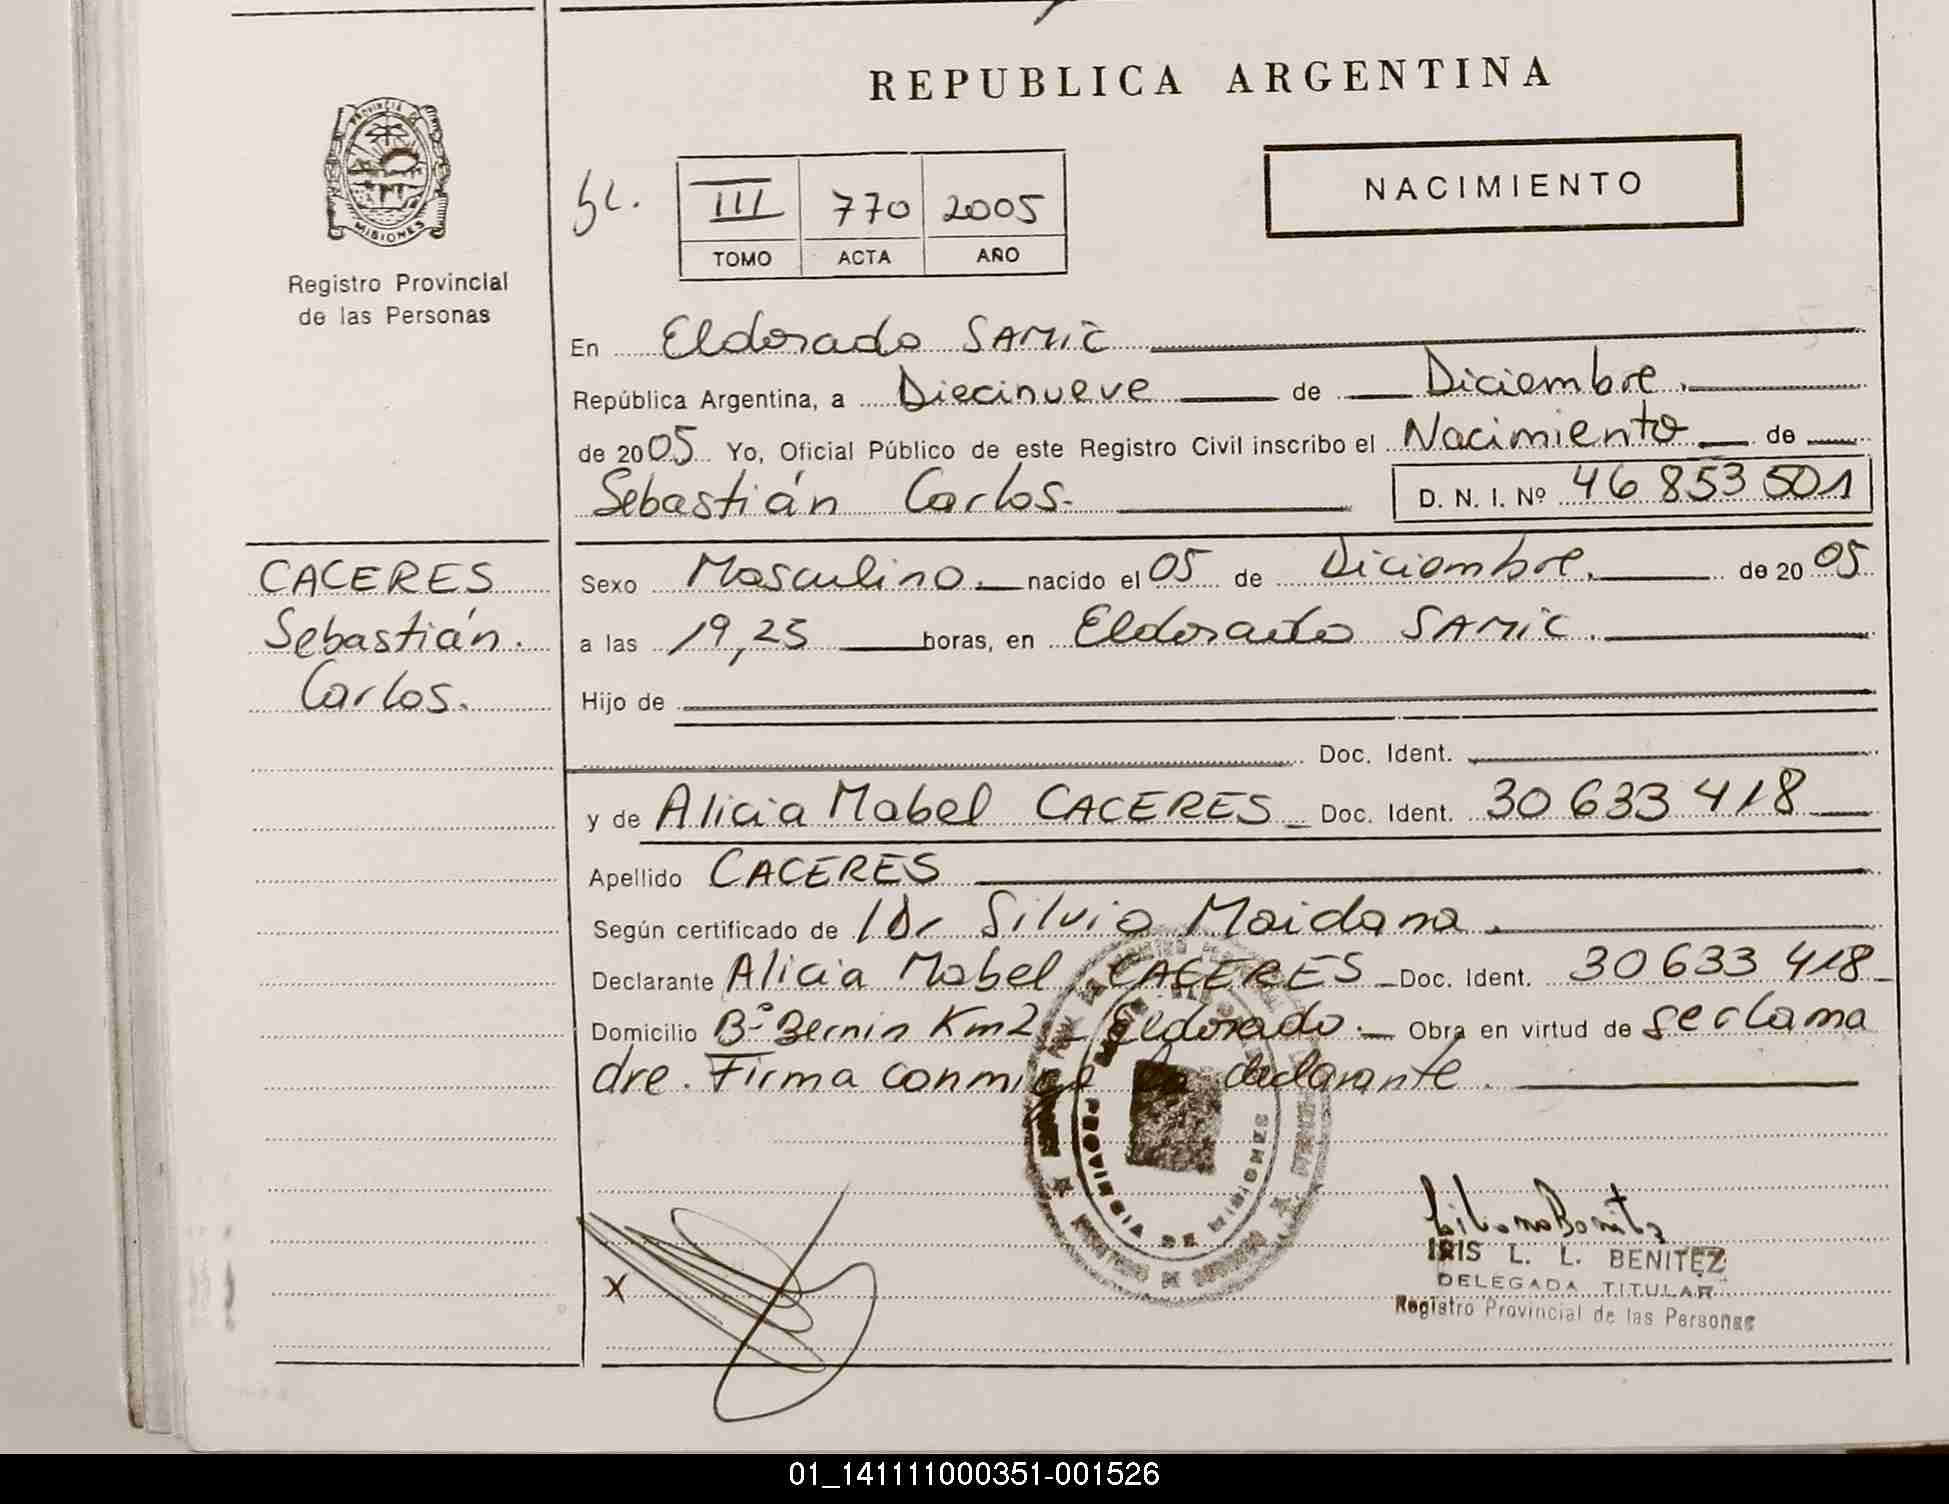 REPUBLICA ARGENTINA
PROVINCIA DE
MISIONES
Registro Provincial
de las Personas
III 770 2005
TOMO ACTA AÑO
NACIMIENTO
En Eldorado SAMIC
República Argentina, a Diecinueve de Diciembre.
de 2005 Yo, Oficial Público de este Registro Civil inscribo el Nacimiento de
Sebastián Carlos. D. N. I. Nº 46 853 501
CACERES
Sebastián.
Carlos.
Sexo Masculino. nacido el 05 de Diciembre. de 2005
a las 19,25 horas, en Eldorado SAMIC.
Hijo de
Doc. Ident.
y de Alicia Mabel CACERES Doc. Ident. 30 633 418
Apellido CACERES
Según certificado de Dr Silvio Maidana.
Declarante Alicia Mabel CACERES Doc. Ident. 30 633 418
Domicilio Bº Bernin Km2 - Eldorado. Obra en virtud de ser la ma
dre. Firma conmigo la declarante.
PROVINCIA DE MISIONES
X
IRIS L. L. BENITEZ
DELEGADA TITULAR
Registro Provincial de las Personas
01_141111000351-001526